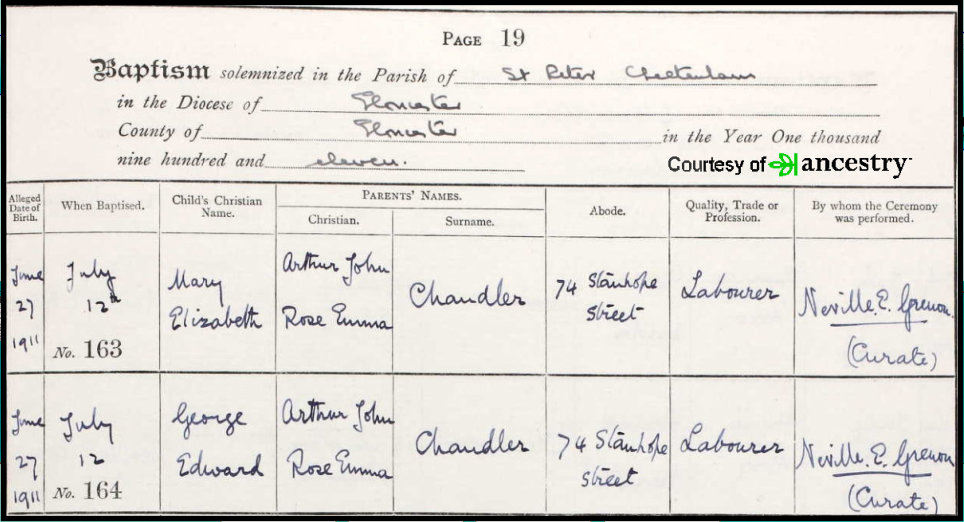 PAGE 19
Baptism solemnized in the Parish of St Peter Cheltenham
in the Diocese of Gloucester
County of Gloucester in the Year One thousand
nine hundred and eleven.
Courtesy of ancestry
Alleged Date of Birth. When Baptised. Child's Christian Name. PARENTS' NAMES. Abode. Quality, Trade or Profession. By whom the Ceremony was performed.
Christian. Surname.
June July Mary Arthur John Chandler 74 Stanhope Labourer Neville. E.
27 12th Elizabeth Rose Emma Street
1911 No. 163 (Curate)
June July George Arthur John Chandler 74 Stanhope Labourer Neville. E.
27 12 Edward Rose Emma Street
1911 No. 164 (Curate)